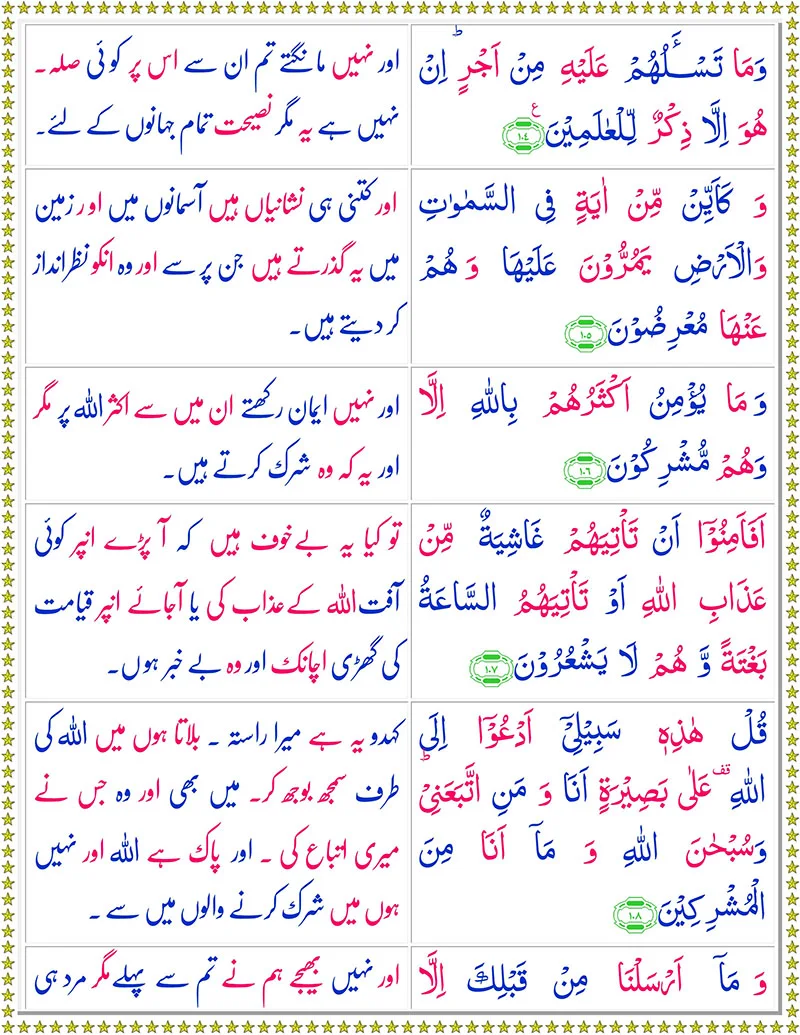 وَمَا تَسْـَٔلُهُمْ عَلَيْهِ مِنْ اَجْرٍؕ اِنْ
هُوَ اِلَّا ذِكْرٌ لِّلْعٰلَمِيْنَ ﴿۱۰٤﴾ ع
اور نہیں مانگتے تم ان سے اس پر کوئی صلہ۔
نہیں ہے یہ مگر نصیحت تمام جہانوں کے لئے۔
وَ كَاَيِّنْ مِّنْ اٰيَةٍ فِى السَّمٰوٰتِ
وَالْاَرْضِ يَمُرُّوْنَ عَلَيْهَا وَ هُمْ
عَنْهَا مُعْرِضُوْنَ ﴿۱۰۵﴾
اور کتنی ہی نشانیاں ہیں آسمانوں میں اور زمین
میں یہ گذرتے ہیں جن پر سے اور وہ انکو نظرانداز
کر دیتے ہیں۔
وَ مَا يُؤْمِنُ اَكْثَرُهُمْ بِاللّٰهِ اِلَّا
وَهُمْ مُّشْرِكُوْنَ ﴿۱۰٦﴾
اور نہیں ایمان رکھتے ان میں سے اکثر اللہ پر مگر
اور یہ کہ وہ شرک کرتے ہیں۔
اَفَاَمِنُوْۤا اَنْ تَاْتِيَهُمْ غَاشِيَةٌ مِّنْ
عَذَابِ اللّٰهِ اَوْ تَاْتِيَهُمُ السَّاعَةُ
بَغْتَةً وَّ هُمْ لَا يَشْعُرُوْنَ ﴿۱۰۷﴾
تو کیا یہ بےخوف ہیں کہ آ پڑے انپر کوئی
آفت اللہ کے عذاب کی یا آجائے انپر قیامت
کی گھڑی اچانک اور وہ بے خبر ہوں۔
قُلْ هٰذِهٖ سَبِيْلِىْۤ اَدْعُوْۤا اِلَى
اللّٰهِ ؔقف عَلٰى بَصِيْرَةٍ اَنَا وَ مَنِ اتَّبَعَنِىْؕ
وَسُبْحٰنَ اللّٰهِ وَ مَاۤ اَنَا مِنَ
الْمُشْرِكِيْنَ ﴿۱۰۸﴾
کہدو یہ ہے میرا راستہ ۔ بلاتا ہوں میں اللہ کی
طرف سمجھ بوجھ کر۔ میں بھی اور وہ جس نے
میری اتباع کی ۔ اور پاک ہے اللہ اور نہیں
ہوں میں شرک کرنے والوں میں سے ۔
وَ مَاۤ اَرْسَلْنَا مِنْ قَبْلِكَ اِلَّا
اور نہیں بھیجے ہم نے تم سے پہلے مگر مرد ہی